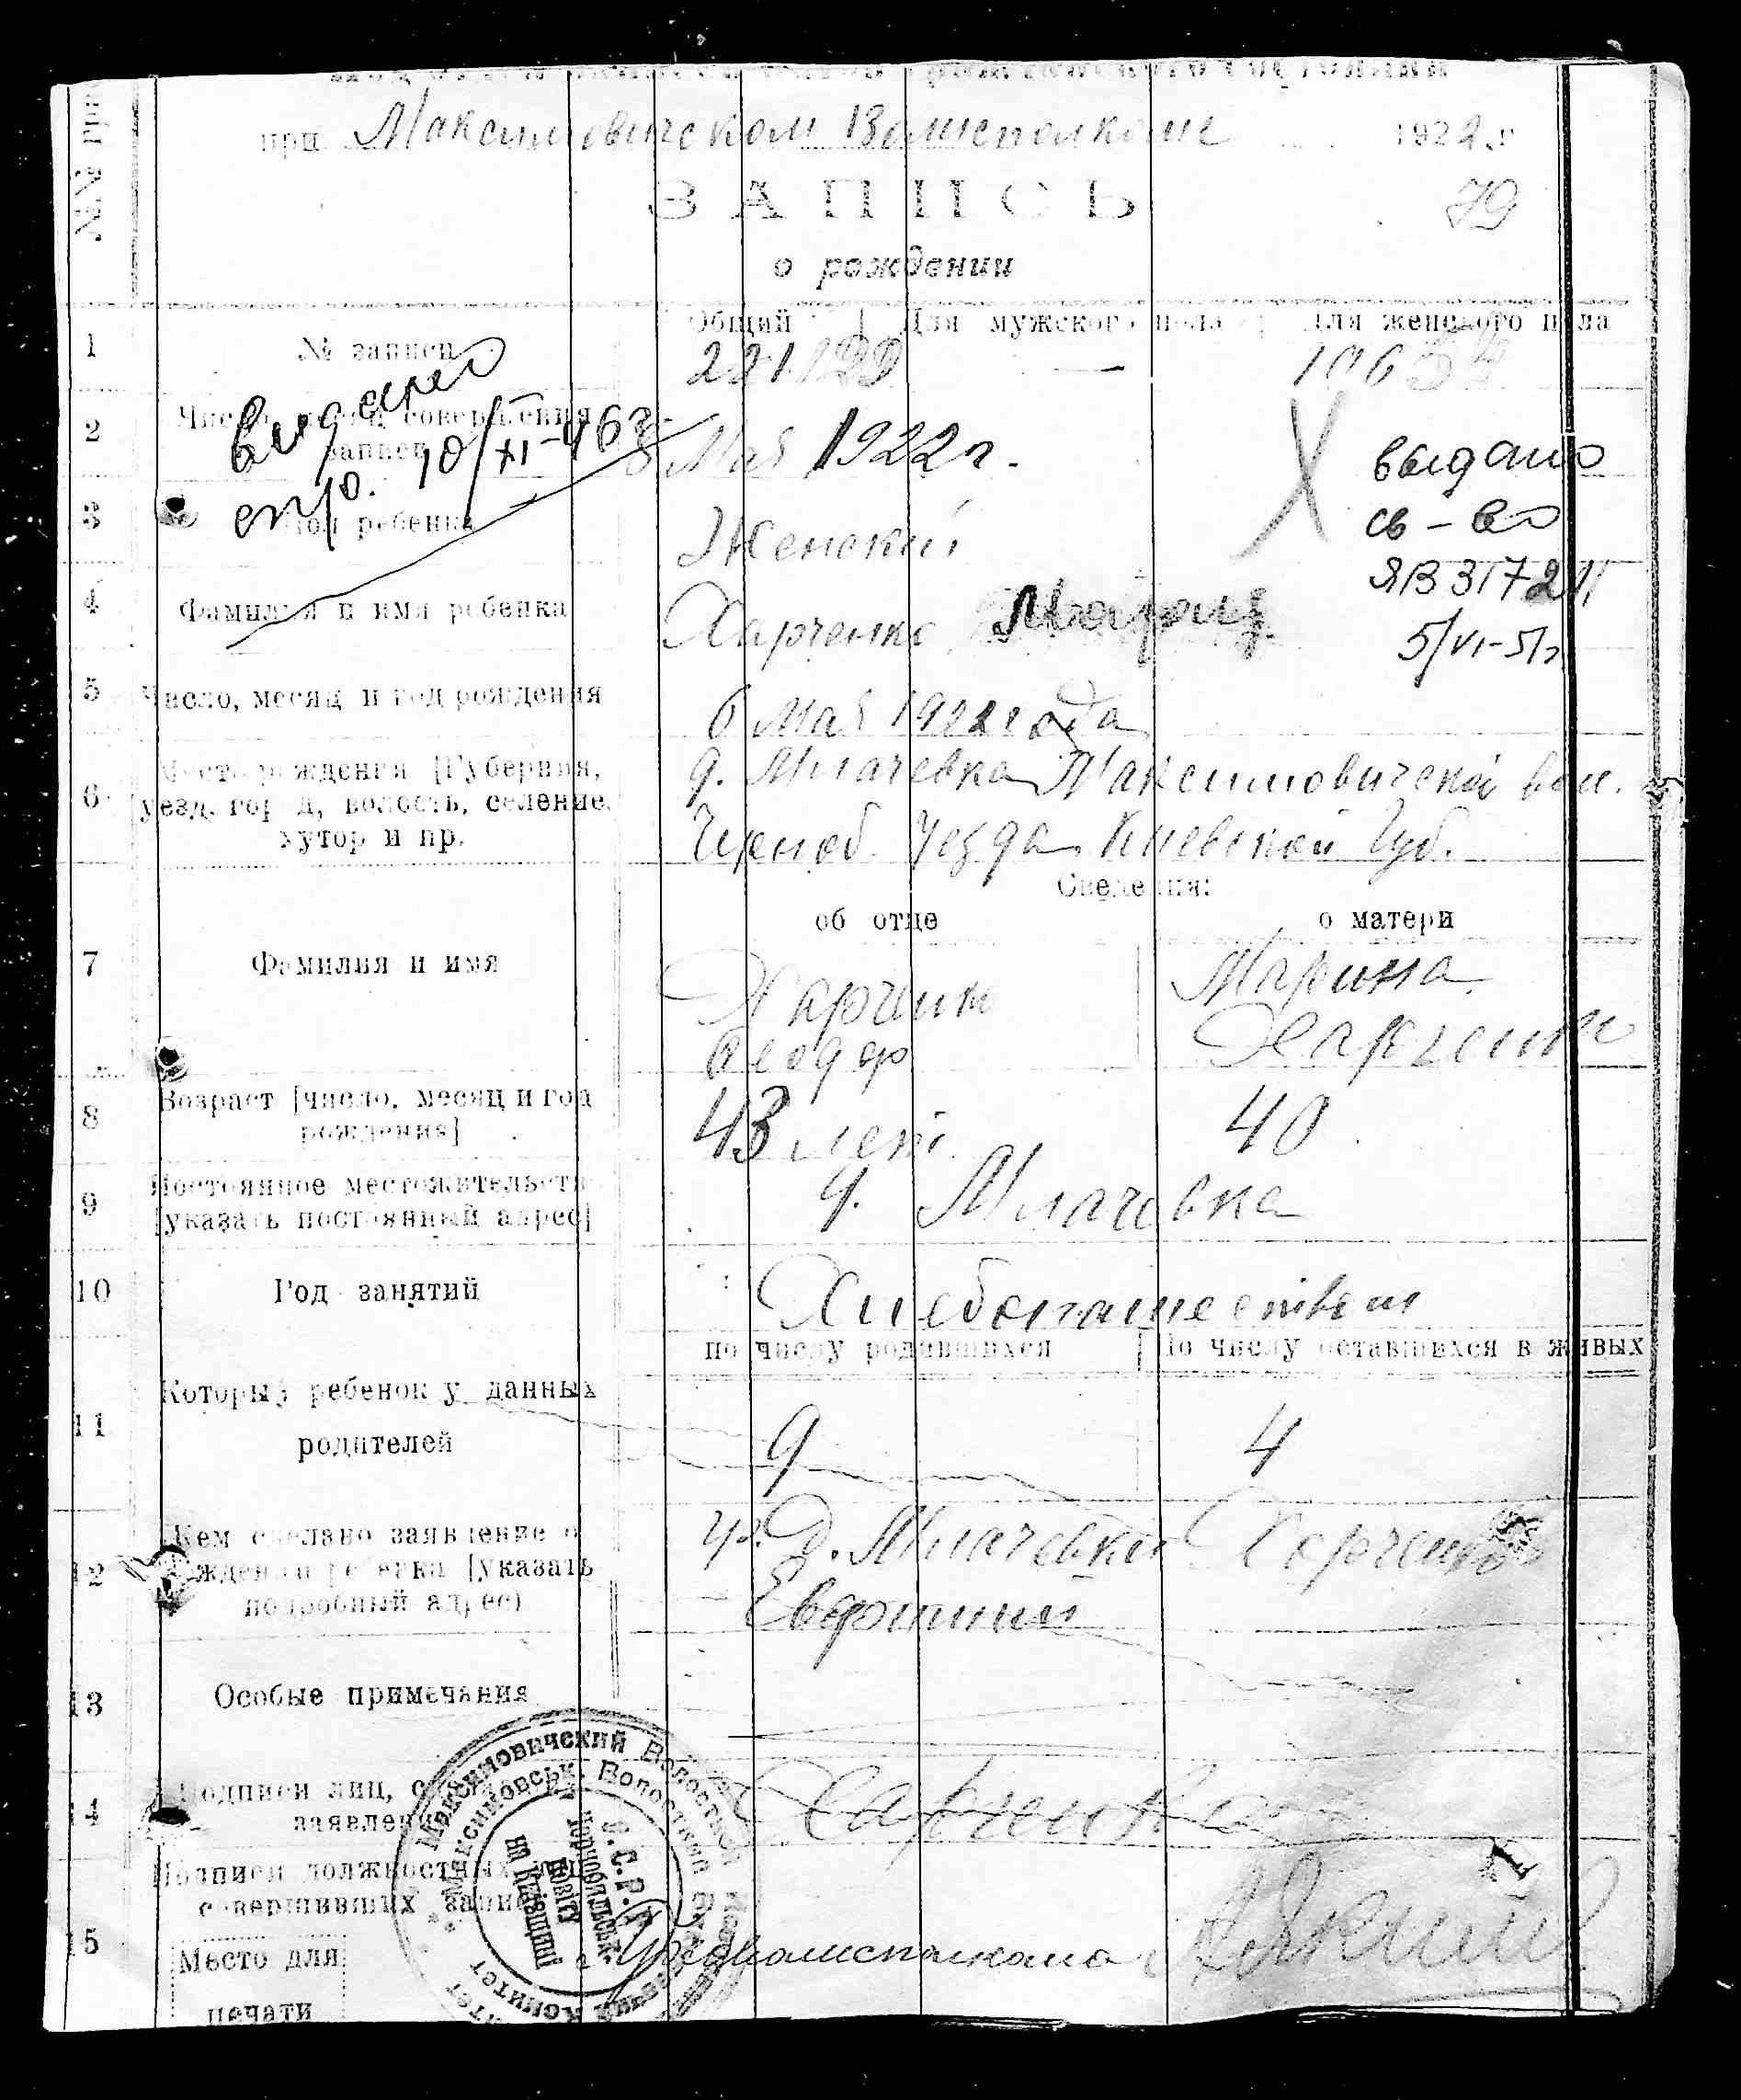 при Максимовическом Волисполкоме 1922 г
79
ЗАПИСЬ
о рождении
№№
Общий Для мужского пола Для женского пола
1 № записи
221 —
выдано
2 записи Мая 1922 г.
выдано
3 ребенка Женский
св-во
ЯВ 317211
4 Фамилия и имя ребенка Харченко Мария
5/VI-51г
5 Число, месяц и год рождения 6 Мая 1922 года
6 Место рождения [Губерния, уезд, город, волость, селение, хутор и пр.
д. Млачевка Максимовической вол.
Черноб. Уезда Киевской Губ.
Сведения:
об отце о матери
7 Фамилия и имя Харченко Марина
Феодор Харченко
8 Возраст [число, месяц и год рождения] 43 лет 40
9 Постоянное местожительство [указать постоянный адрес] д. Млачевка
10 Род занятий Хлебопашеством
по числу родившихся По числу оставшихся в живых
11 Который ребенок у данных родителей 9 4
12 Кем сделано заявление о рождении ребенка [указать подробный адрес)
гр. д. Млачевки Харченко
13 Особые примечания
14 Подписи лиц, заявление Харченко
15 Подписи должностных лиц совершивших запись
Предволисполкома
Место для печати
Максимовический Волостной
Максимовськ. Волостний
У.С.Р.Р.
Чорнобильськ.
повіту
на Київщині
Комитет